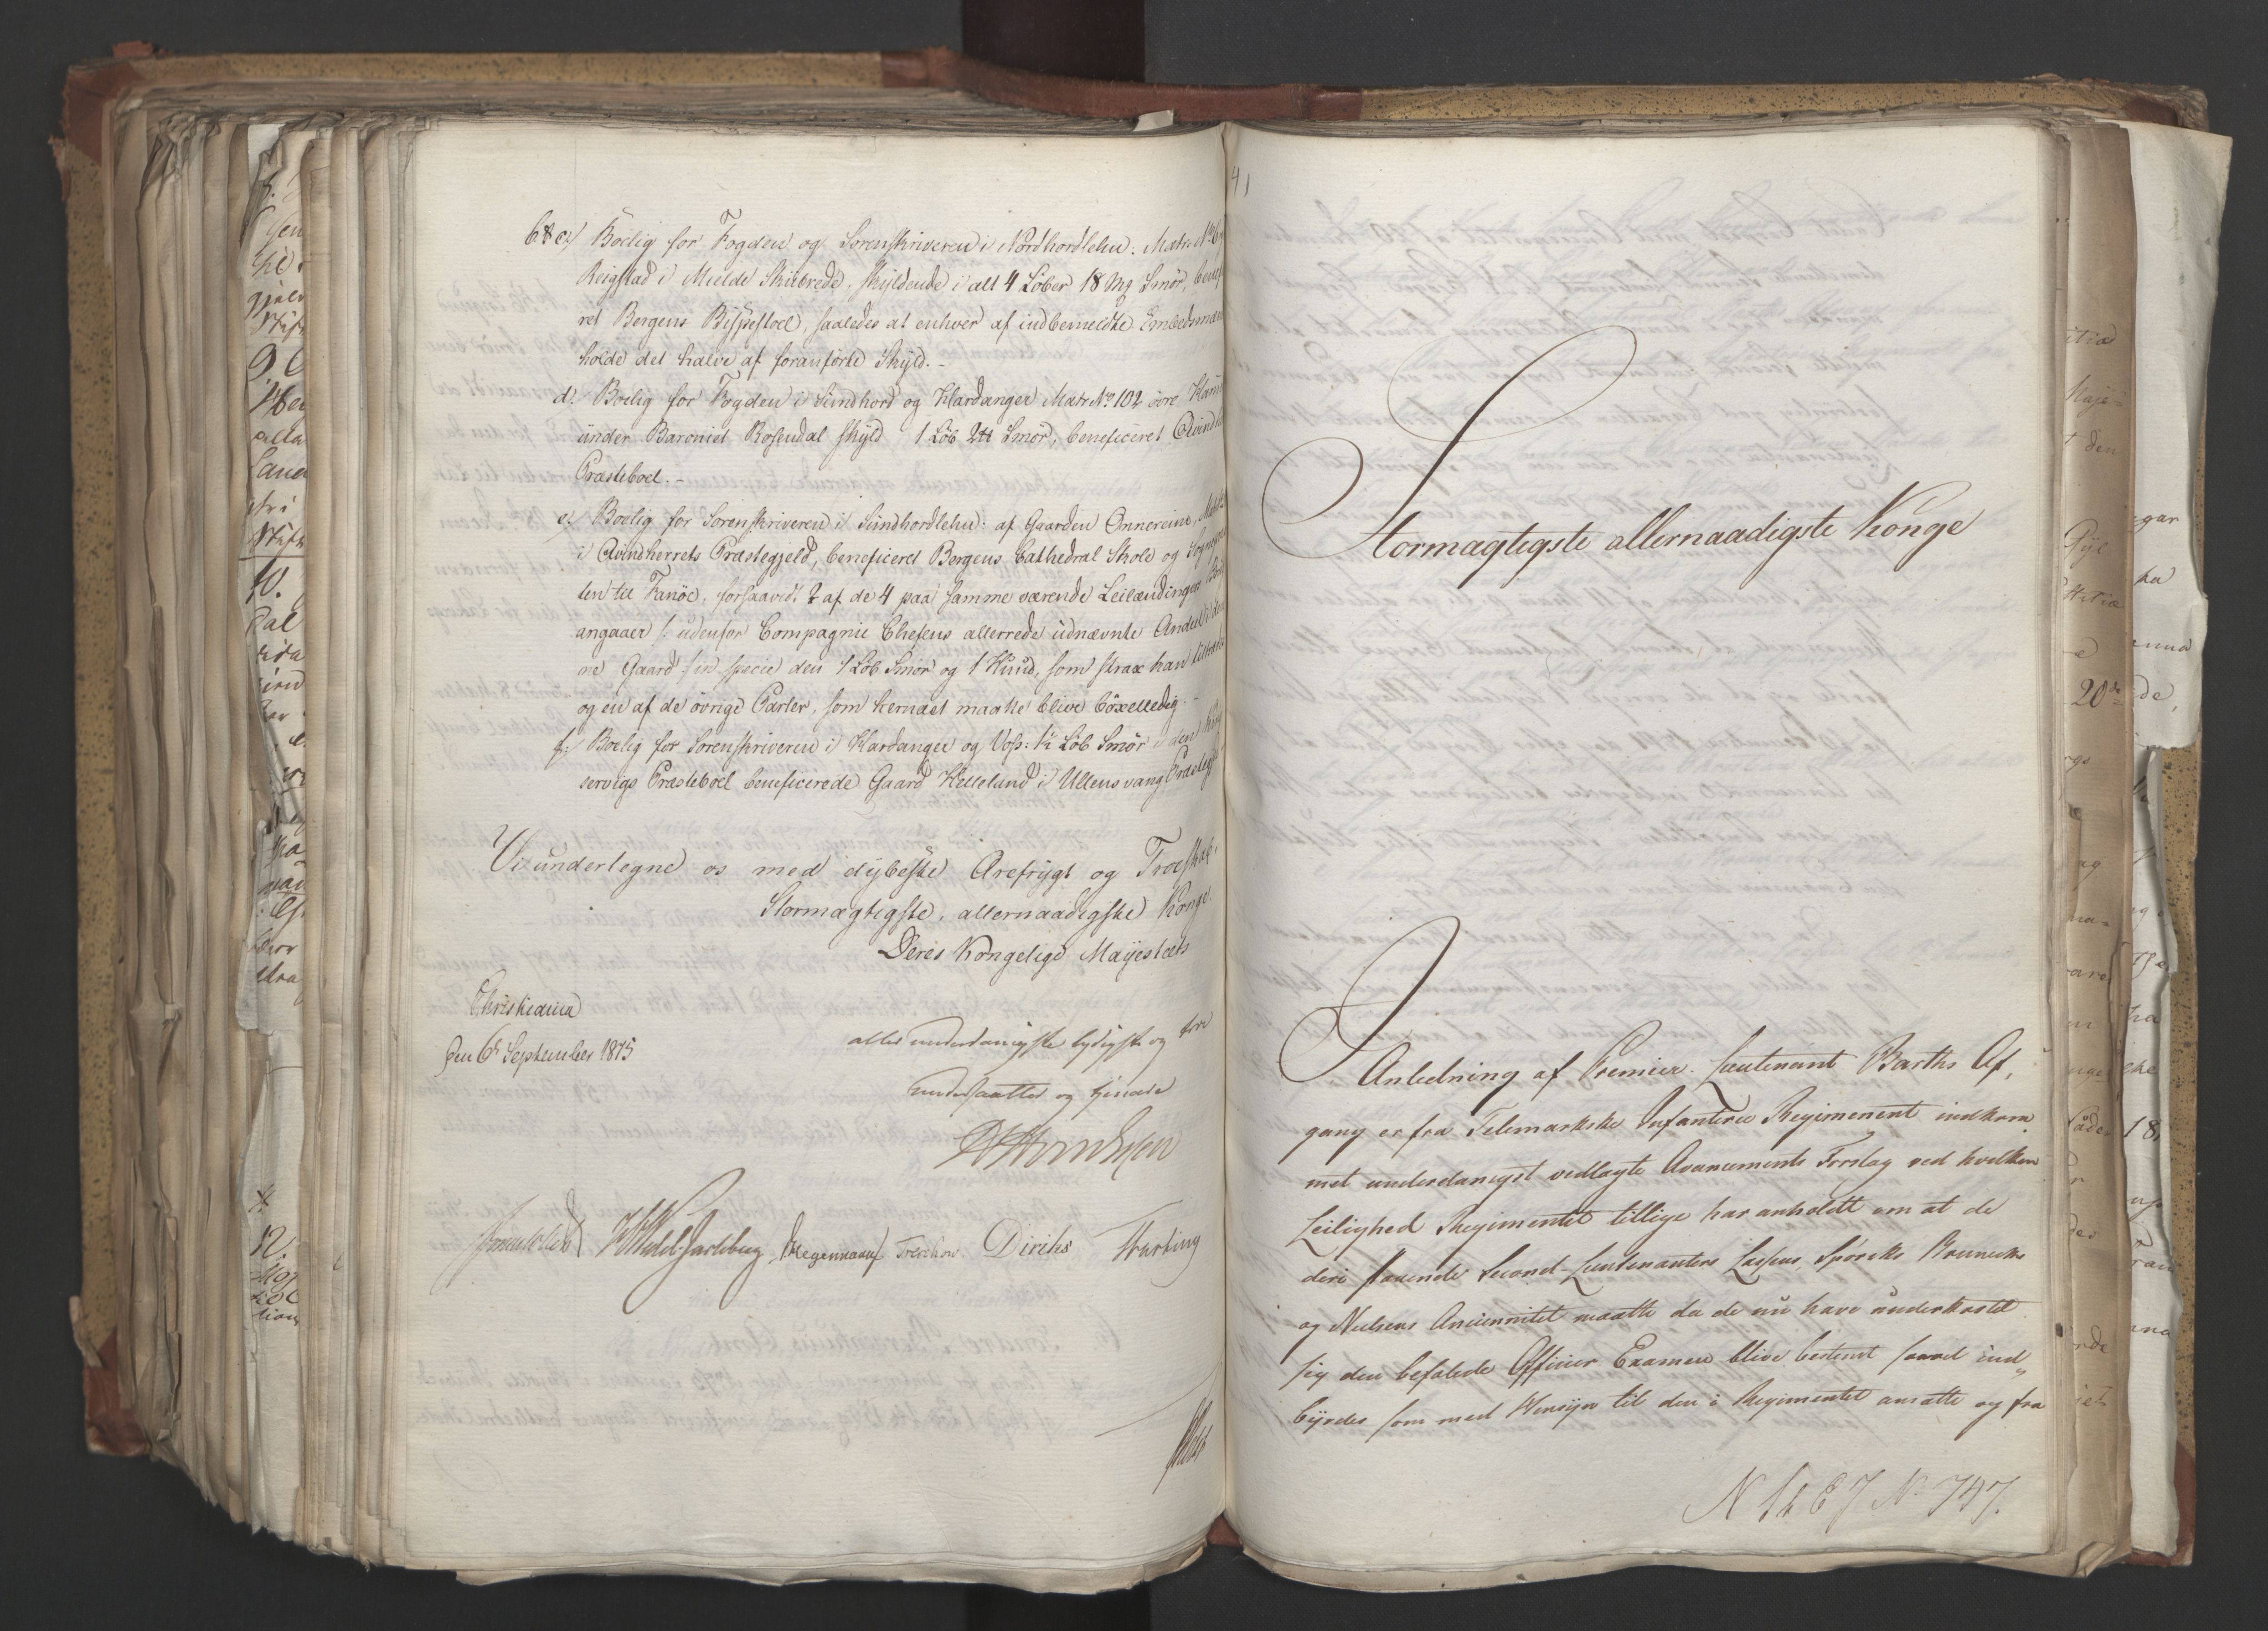 b & c/ Boelig for Fogden og Sorenskriveren i Nordhordlehn: Matr: No
Reigstad i Mielde Skibrede, skyldende i alt 4 Löber 18 Mg Smör, benef
ret Bergens Bispestoel, saaledes at enhver af indbemeldte Embedsmæn
holde det halve af foranförte Skyld.-
d. Boelig for Fogden i Sundhord og Hardanger Matr No 102 övre
under Baroniet Rosendal skyld 1 Löb Smör, beneficeret Qvindh
Præsteboel.-
e/ Boelig for Sorenskriveren i Sundhordlehn: af Gaarden Onnereim,
i Qvindherrets Præstegjeld, beneficeret Bergens Cathedral Skole og
len til Fanöe, forsaavidt 2 af de 4 paa samme værende Leilændinger
angaaer /: udenfor Compagnie Chefens allerrede udnævnte Andeel i den
ne Gaard /in specie den 1 Löb Smör og 1 Huud, som strax kan tiltræd
og en af de övrige Parter, som hernæst maatte blive böxelledig.-
f: Boelig for Sorenskriveren i Hardanger og Voss: 1½ Löb Smör i den
servigs Præsteboel beneficerede Gaard Helleland i Ullensvang Præstegj
Vi undertegne os med dybeste Ærefrygt og Troeskab,
Stormægtigste, allernaadigste Konge,
Deres Kongelige Mayestæts
Christiania
den 6te September 1815
allerunderdanigste lydigste og troe
undersaatter og tjenere
Sommerfeldt HWedel-Jarlsberg Hegermann Treschow Diriks Thurting
41
Stormægtigste allernaadigste Konge
I
Anledning af Premier-Lieutenant Barths Af,
gang er fra Telemarkske Infanterie Regimenent indkom
met underdanigst vedlagte Avancements Forslag ved hvilken
Leilighed Regimentet tillige har anholdt om at de
deri staaende Second-Lieutenanter Laspus, Spörcks Brunecks
og Nielsens Anciennitet maatte da de nu have underkastet
sig den befalede Officier Examen blive bestemt saavel ind„
byrdes som med Hensyn til den i Regimentet ansatte og fra
No 747.